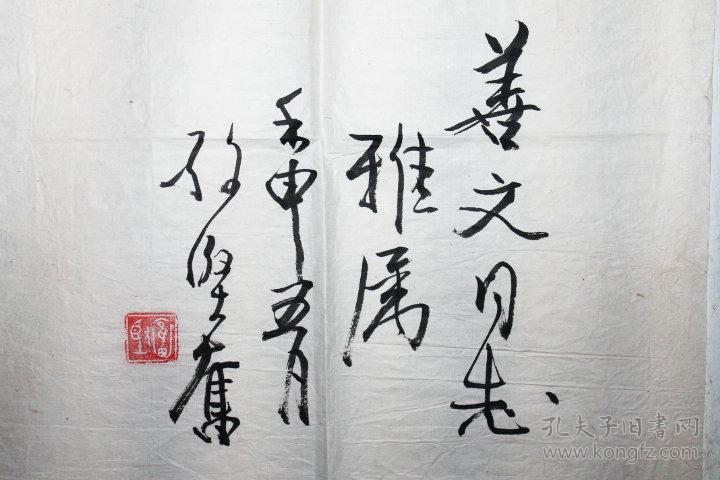 善文同志
雅属
壬申五月
奋
孔夫子旧书网
www.kongfz.com